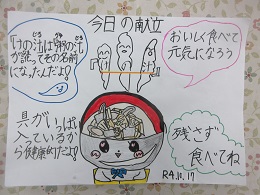 今日の献立
「けの汁」は「粥の汁」
が訛ってその名前
になったんだよ！
おいしく食べて
元気になろう
具がいっぱい
入っているか
ら健康的だよ！
残さず
食べてね
R4.10.17